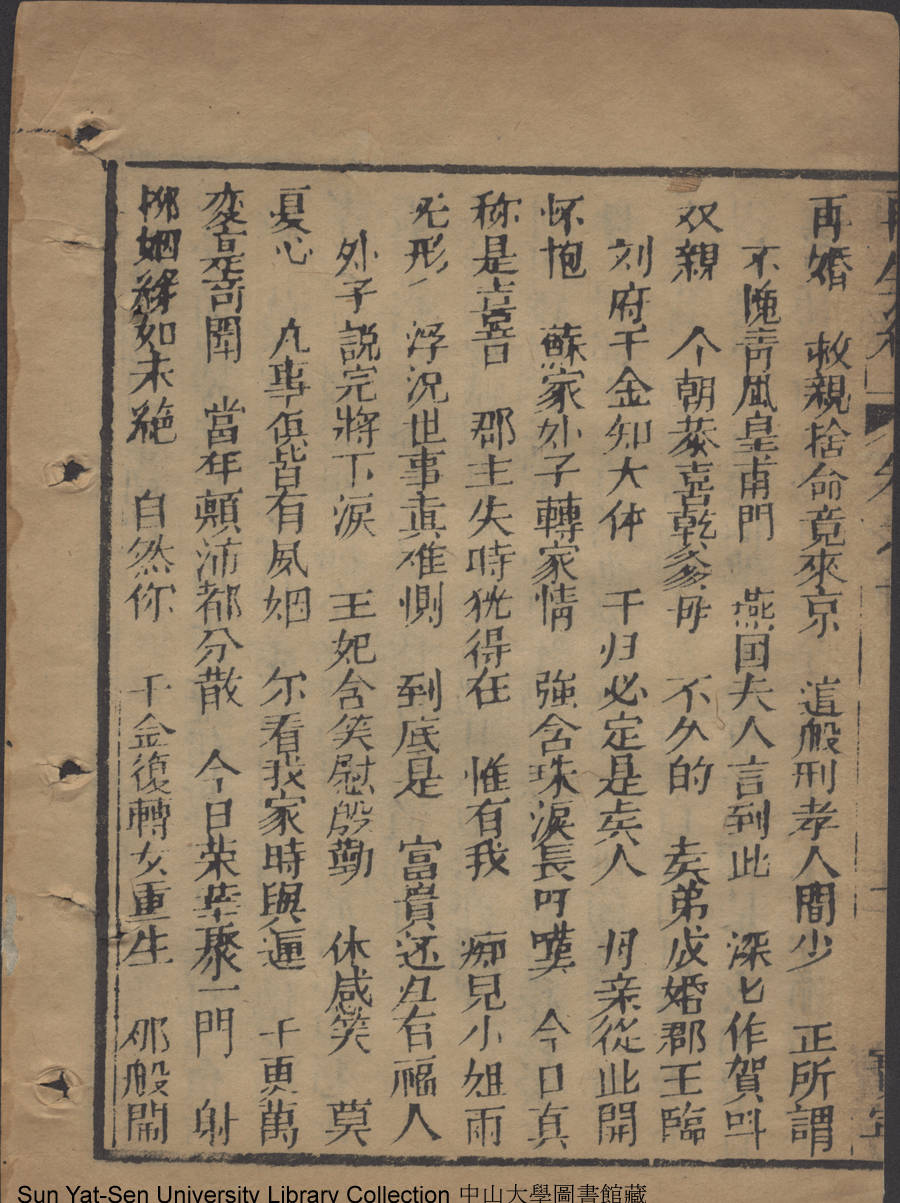 再婚 救親捨命竟來京 這般刑孝人間少 正所謂
不愧青風皇甫門 燕国夫人言到此 深匕作賀呌
双親 个朝恭喜乾爹母 不久的 矣弟成婚郡王臨
刘府千金知大体 于归必定是矣人 母亲從此開
怀抱 蘇家外子轉家情 強含珠淚長吁嘆 今日真
称是吉喜日 郡主失時犹得在 惟有我 痴兒小姐雨
无形 浮況世事真难惻 到底是 富貴还丛有福人
外子説完將下淚 王妃含笑慰殷勤 休感笑 莫
憂心 凢事俱皆有夙姻 尔看我家時與运 千更萬
变是奇聞 當年顛沛都分散 今日荣華聚一門 射
柳姻緣如未絶 自然你 千金復轉女重生 那般開
Sun Yat-Sen University Library Collection 中山大學圖書館藏